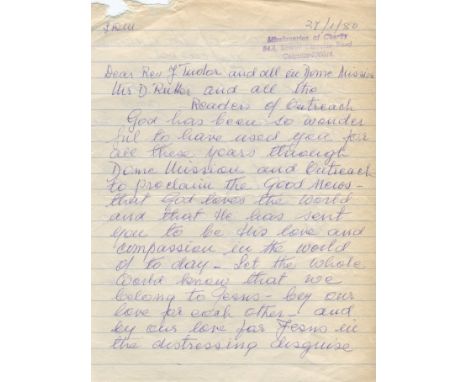 LDM 27/1/80
Missionaries of Charity
54A, Lower Circular Road
Calcutta-700016
Dear Rev J Tudor and all in Dome Mission
Mr D Rutter and all the
Readers of Outreach
God has been so wonder
ful to have used you for
all these years through
Dome Mission and Outreach
to proclaim the Good News -
that God loves the world
and that He has sent
you to be His love and
compassion in the world
of to day - Let the whole
World know that we
belong to Jesus - by our
love for each other - and
by our love for Jesus in
the distressing disguise